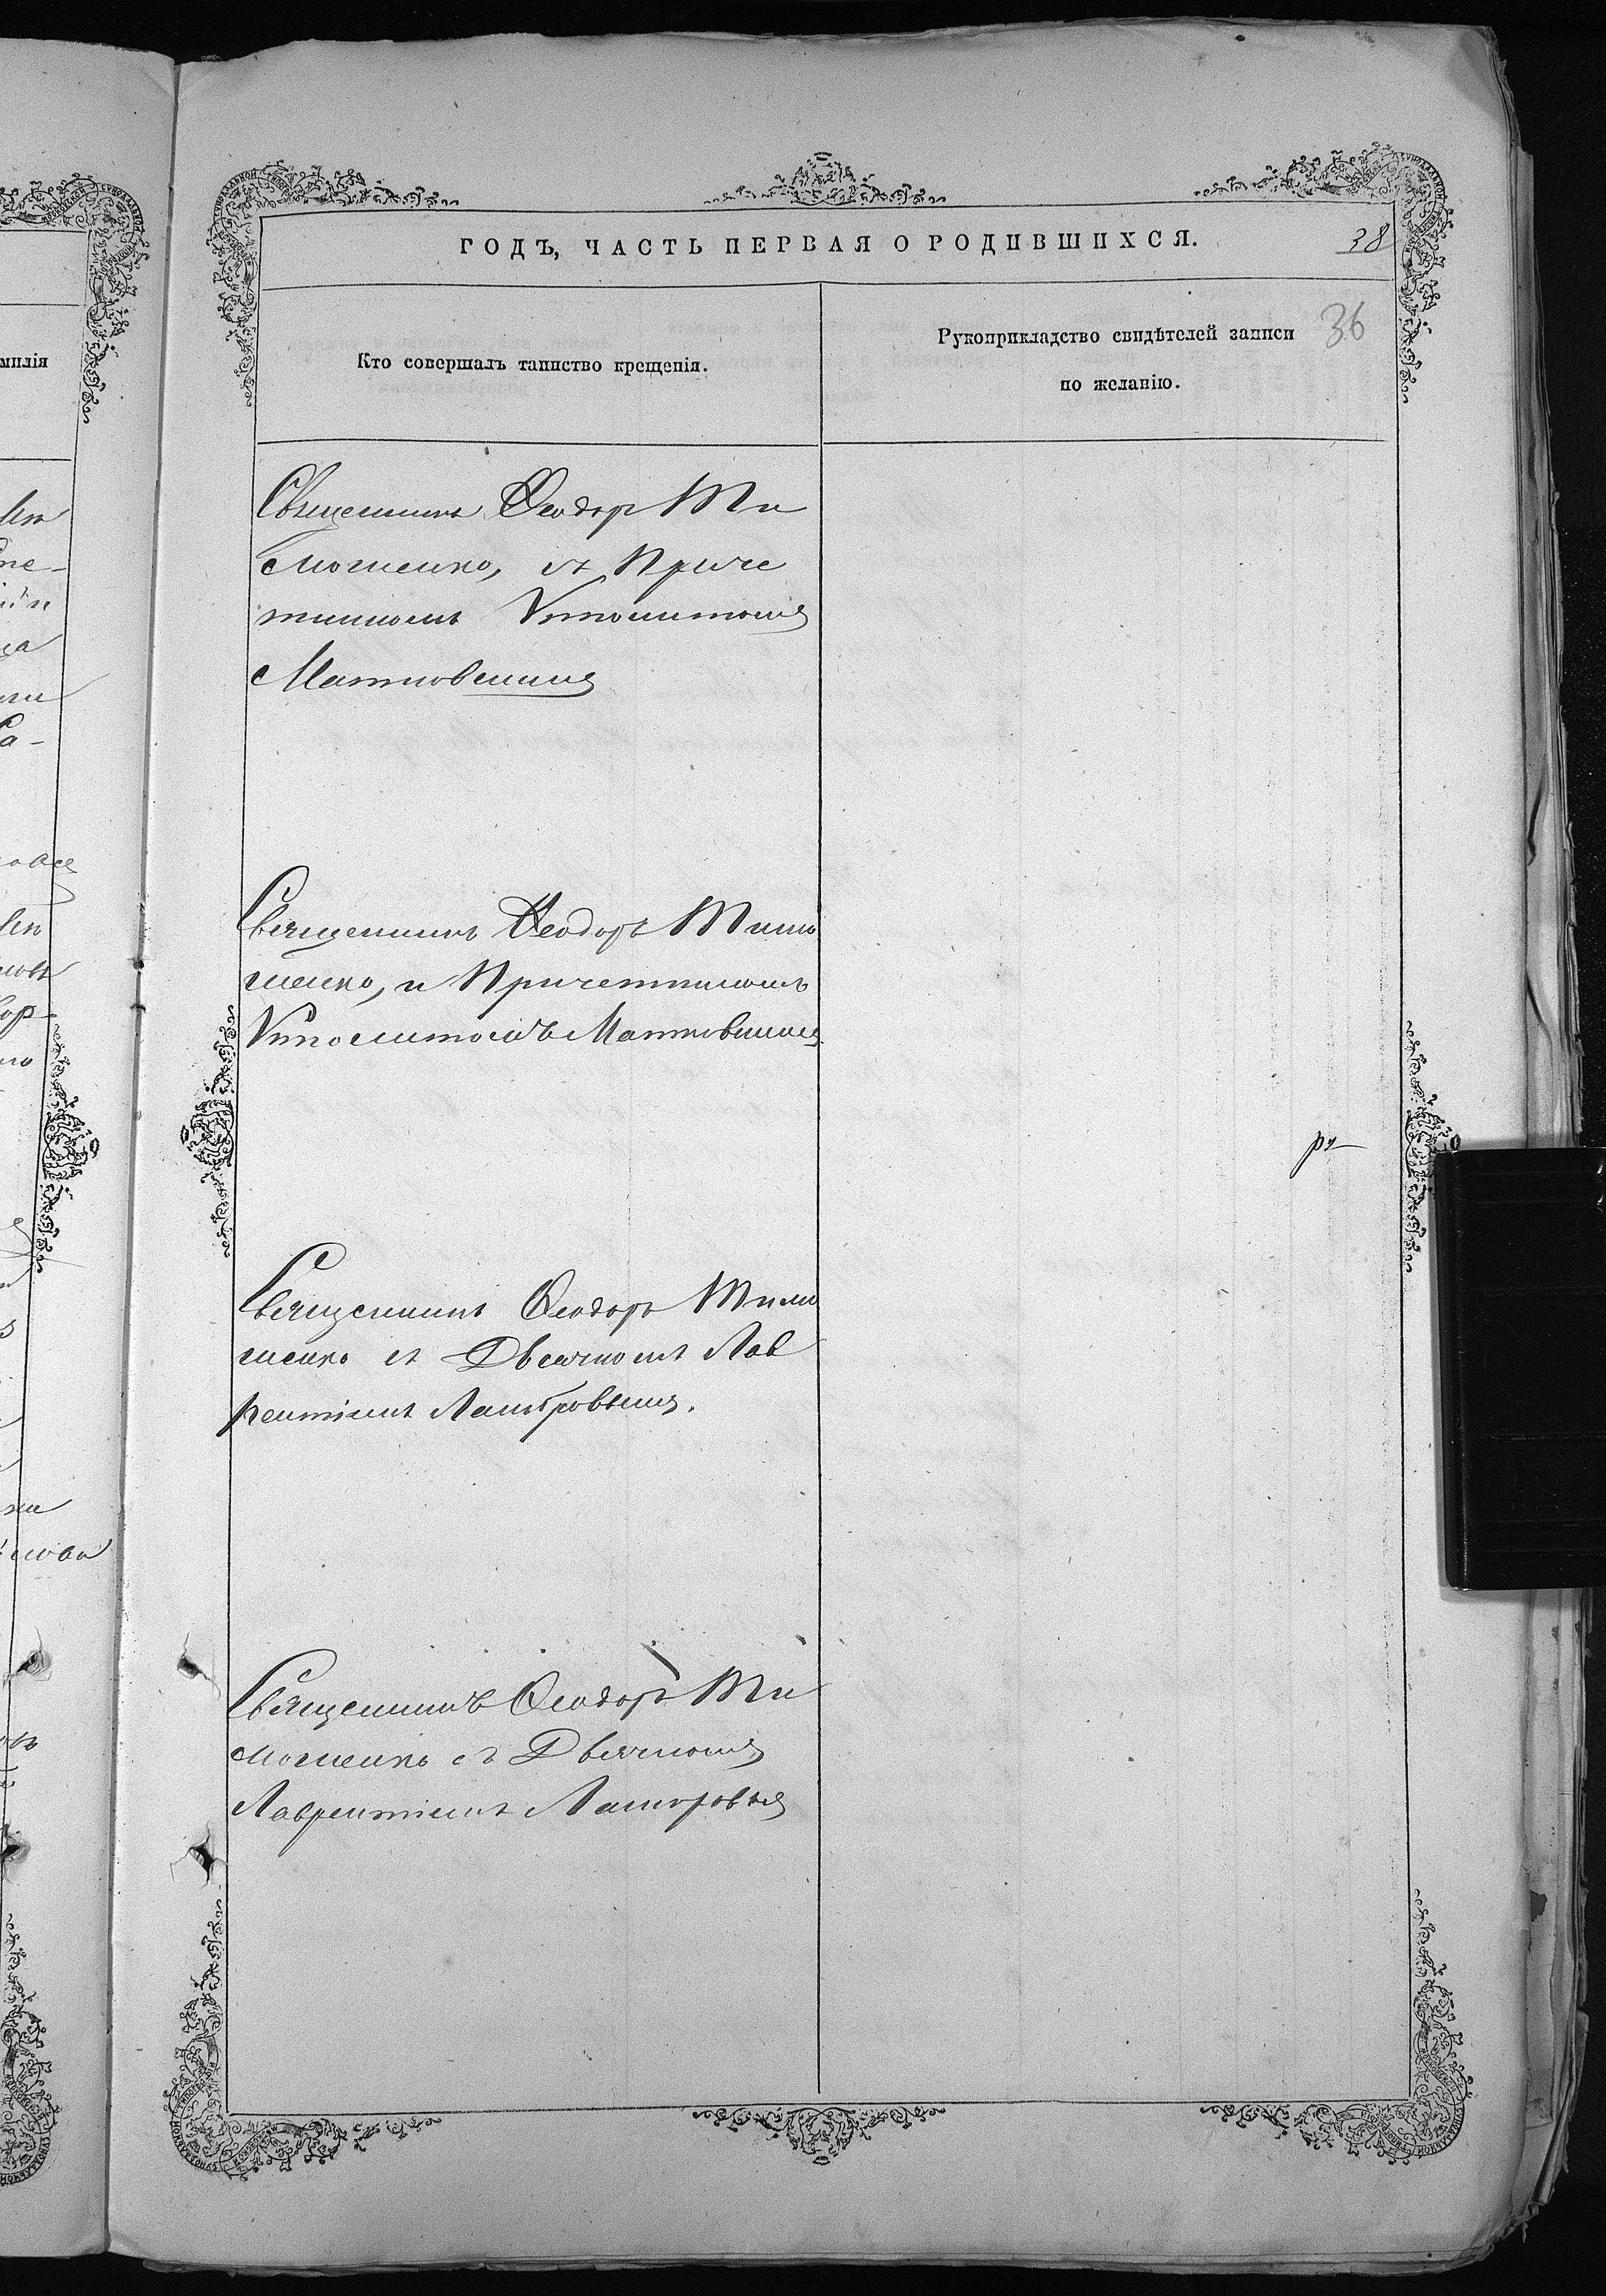 ГОДЪ, ЧАСТЬ ПЕРВАЯ О РОДИВШИХСЯ.
38
Кто совершалъ таинство крещенія.
Рукоприкладство свидѣтелей записи
по желанію.
36
Священникъ Ѳеодоръ Ти
мошенко, съ Приче
тникомъ Ипполитомъ
Матковскимъ
Священникъ Ѳеодоръ Тимо
шенко, и Причетникомъ
Ипполитомъ Матковскимъ
Священникъ Ѳеодоръ Тимо
шенко съ Дьячкомъ Лав
рентіемъ
Священникъ Ѳеодоръ Ти
мошенко съ Дьячкомъ
Лаврентіемъ
милія